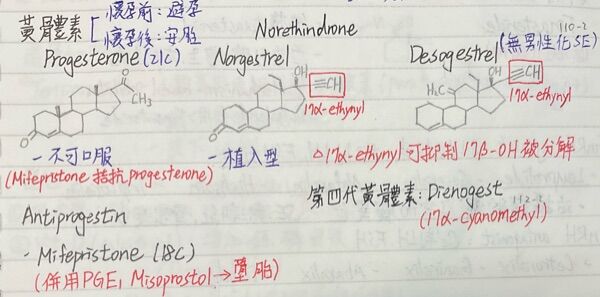 黃體素 懷孕前：避孕
懷孕後：安胎
Norethindrone
110-2
Progesterone (21C) Norgestrel Desogestrel (無男性化SE)
O OH ≡CH H₂C OH ≡CH
CH₃ 17α-ethynyl 17α-ethynyl
O O
- 不可口服 - 植入型 △17α-ethynyl 可抑制 17β-OH 被分解
(Mifepristone 拮抗 progesterone)
第四代黃體素: Dienogest
112-2
Antiprogestin (17α-cyanomethyl)
- Mifepristone (18C)
(併用PGE₁ Misoprostol → 墮胎)